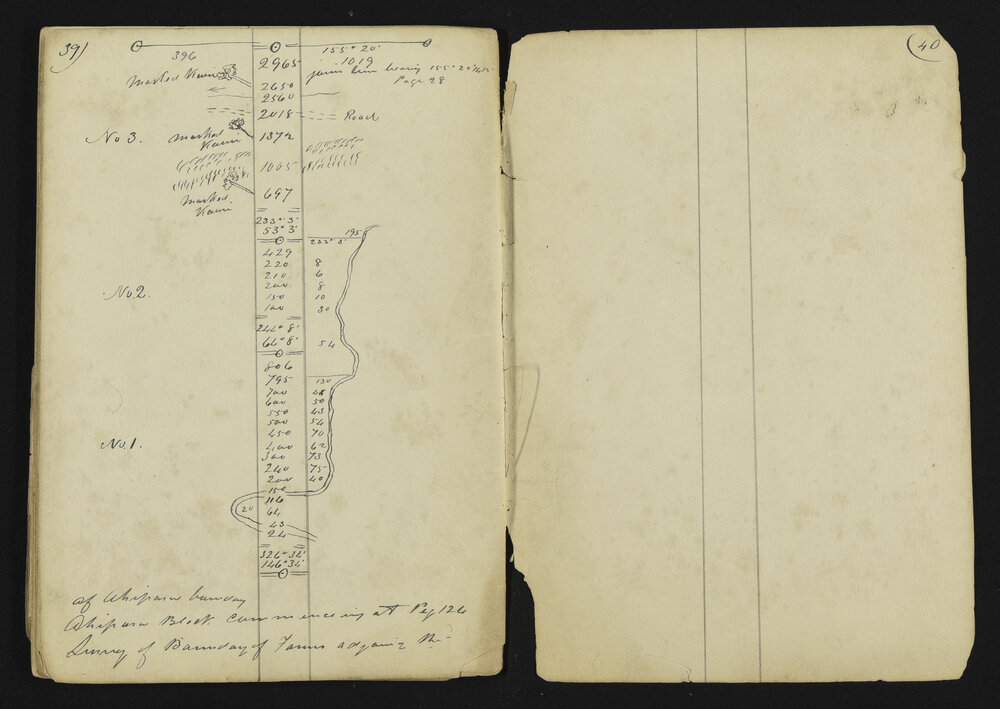 39)
155° 20'
396
2965
1019
Marked Kauri
joins line bearing 155° 20' 15"
Page 28
2650
2560
2018
Road
No 3.
Marked
Kauri
1372
1005
697
Marked
Kauri
233° 3'
53° 3'
195
233° 3'
429
220 8
210 6
200 8
No. 2.
150 10
100 30
244° 8'
64° 8'
54
806
795 130
700 48
600 50
550 43
500 54
450 70
No. 1.
400 62
300 73
240 75
200 40
150
116
20
64
43
24
326° 34'
146° 34'
of Ahipara bounday
Ahipara Block Commencing at Peg 124
Survey of Bounday of Farms adjoining the
40